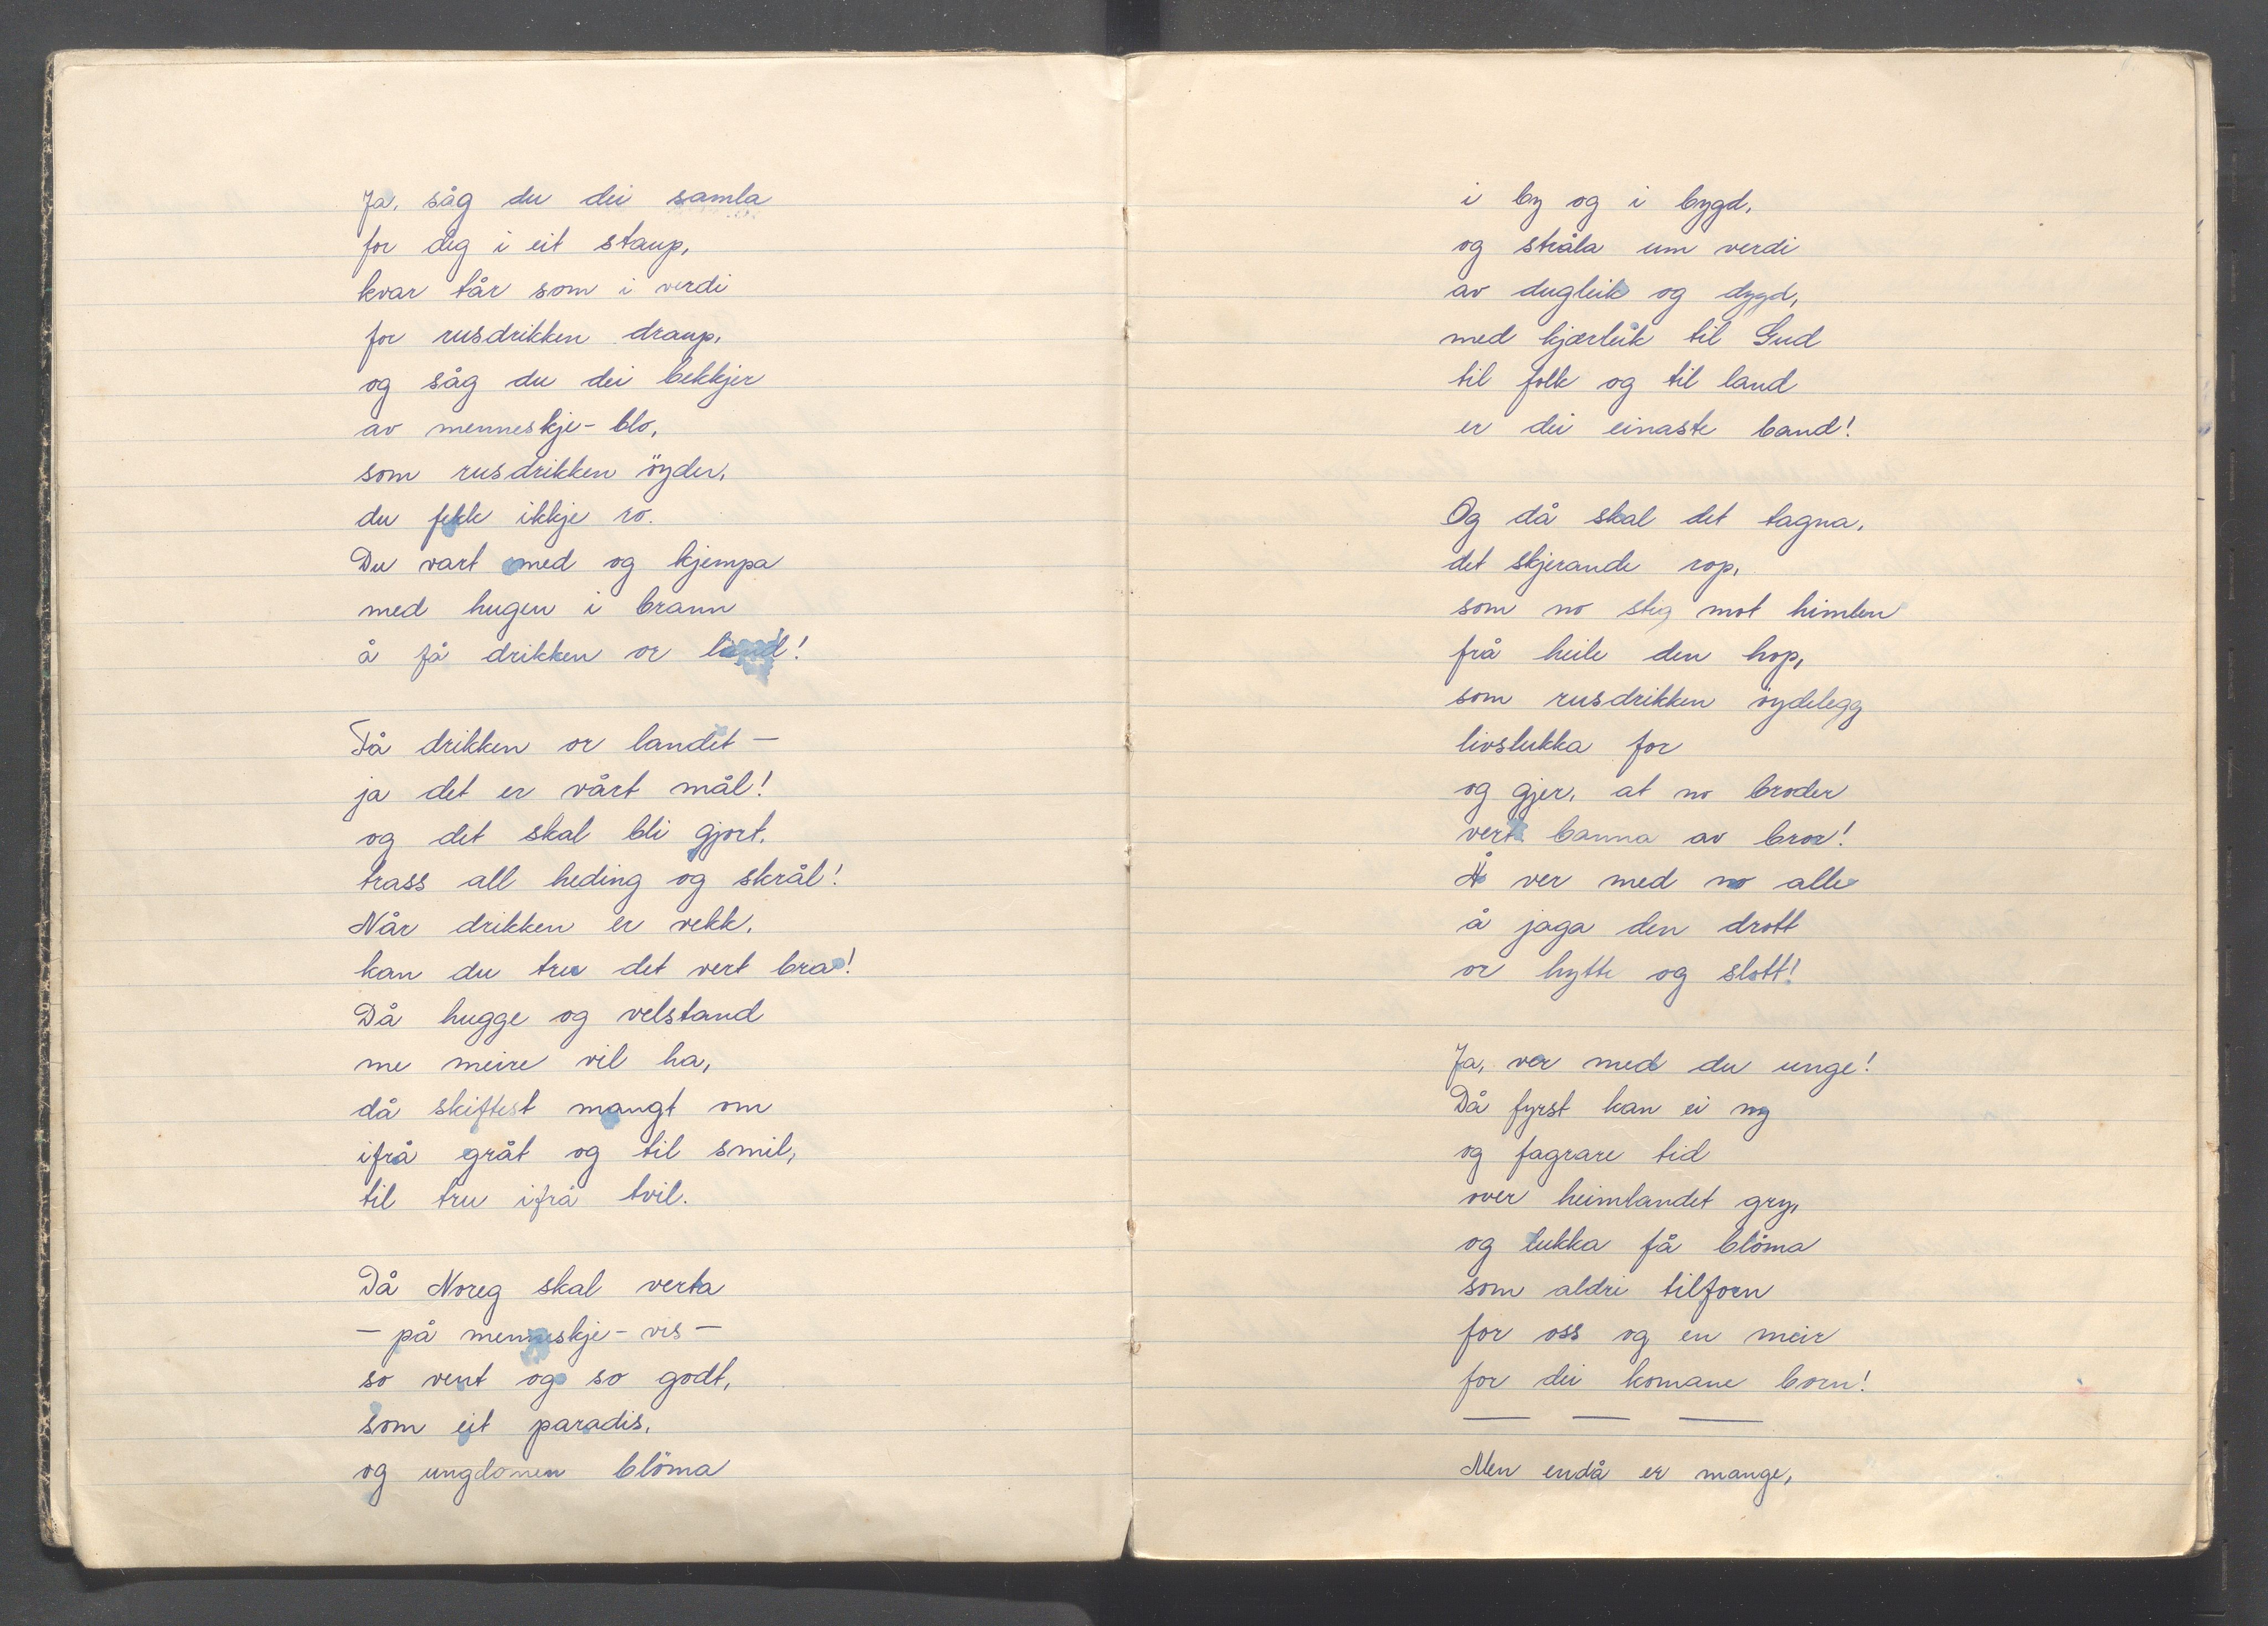 Ja, såg du dei samla
for deg i eit staup,
kvar tår som i verdi
for rusdrikken draup,
og såg du dei bekkjer
av menneskje-blo,
som rusdrikken öyder,
du fekk ikkje ro.
Du vart med og kjempa
med hugen i brann
å få drikken or land!
Få drikken or landet —
ja det er vårt mål!
og det skal bli gjort,
trass all heding og skrål!
Når drikken er vekk,
kan du tru det vert bra!
Då hugge og velstand
me meire vil ha,
då skiftest mangt om
ifrå gråt og til smil,
til tru ifrå tvil.
Då Noreg skal verta
— på menneskje-vis —
so vent og so godt,
som eit paradis,
og ungdomen blöma
i by og i bygd,
og stråla um verdi
av dugleik og dygd,
med kjærleik til Gud
til folk og til land
er dei einaste band!
Og då skal det tagna,
det skjerande rop,
som no stig mot himlen
frå heile den hop,
som rusdrikken öydelegg
livslukka for
og gjer, at no broder
vert banna av bror!
Å ver med no alle
å jaga den drott
or hytte og slott!
Ja, ver med du unge!
Då fyrst kan ei ny
og fagrare tid
over heimlandet gry,
og lukka få blöma
som aldri tilforn
for oss og en meir
for dei komane born!
— — —
Men endå er mange,